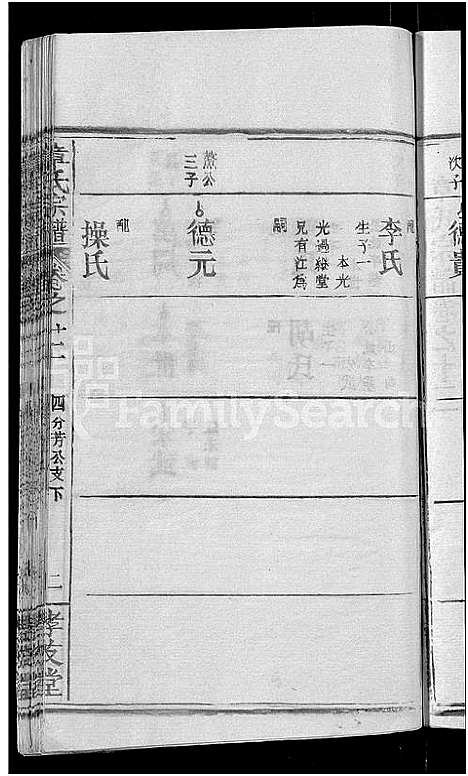 次子
德貴
配
李氏
生子一
本光
光過繼堂
兄有江爲
嗣
薰公
三子
德元
配
操氏
章氏宗譜
卷之十二
四分芳公支下
二
孝友堂
FamilySearch